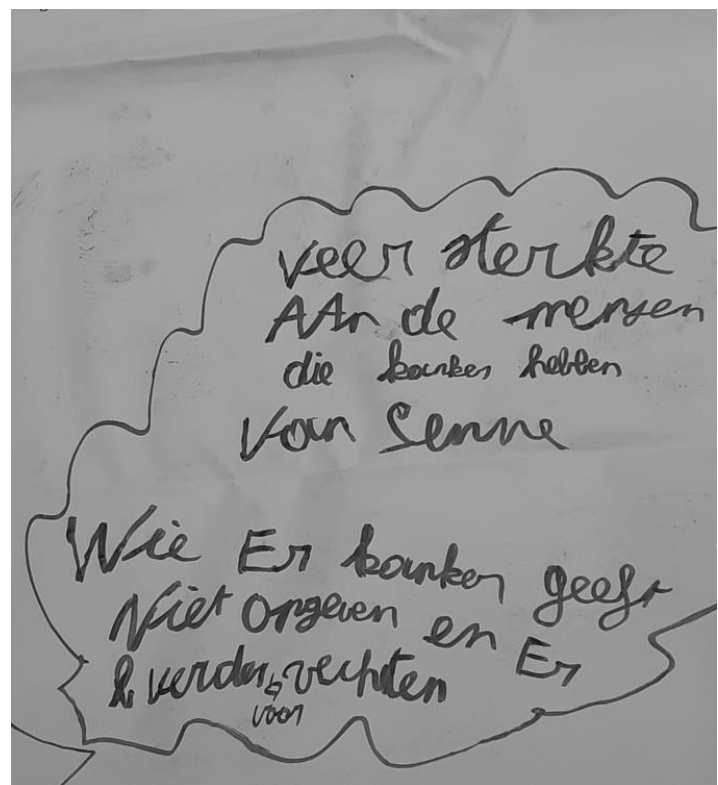 veer sterkte
AAn de mensen
die kanker hebben
van Senne
Wie Er kanker geeft
Niet opgeven en Er
& verder vechten
voor